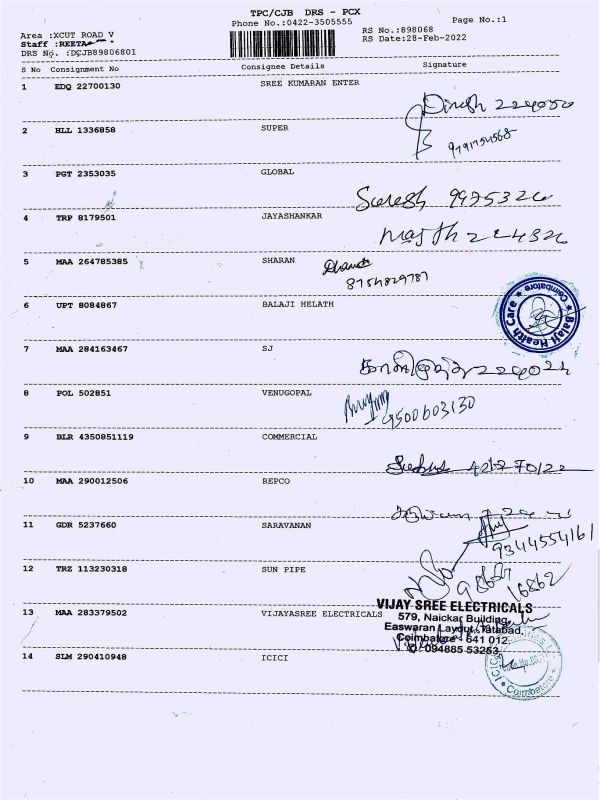 TPC/CJB DRS - PCX
Phone No.:0422-3505555
Page No.:1
Area :XCUT ROAD V
RS No.:898068
Staff :REETA
RS Date:28-Feb-2022
DRS No. :DCJB89806801
S No Consignment No Consignee Details Signature
1 EDQ 22700130 SREE KUMARAN ENTER
Dinesh 224050
2 HLL 1336858 SUPER
9791754568
3 PGT 2353035 GLOBAL
Suresh 9975326
4 TRP 8179501 JAYASHANKAR
224326
5 MAA 264785385 SHARAN
8754829787
6 UPT 8084867 BALAJI HELATH
Balaji Health Care
Coimbatore
7 MAA 284163467 SJ
8 POL 502851 VENUGOPAL
9500603130
9 BLR 4350851119 COMMERCIAL
10 MAA 290012506 REPCO
11 GDR 5237660 SARAVANAN
9344554161
12 TRZ 113230318 SUN PIPE
16862
VIJAY SREE ELECTRICALS
13 MAA 283379502 VIJAYASREE ELECTRICALS
579, Naickar Building,
Easwaran Layout, Tatabad,
Coimbatore - 641 012.
094885 53253
14 SLM 290410948 ICICI
ICICI
Coimbatore